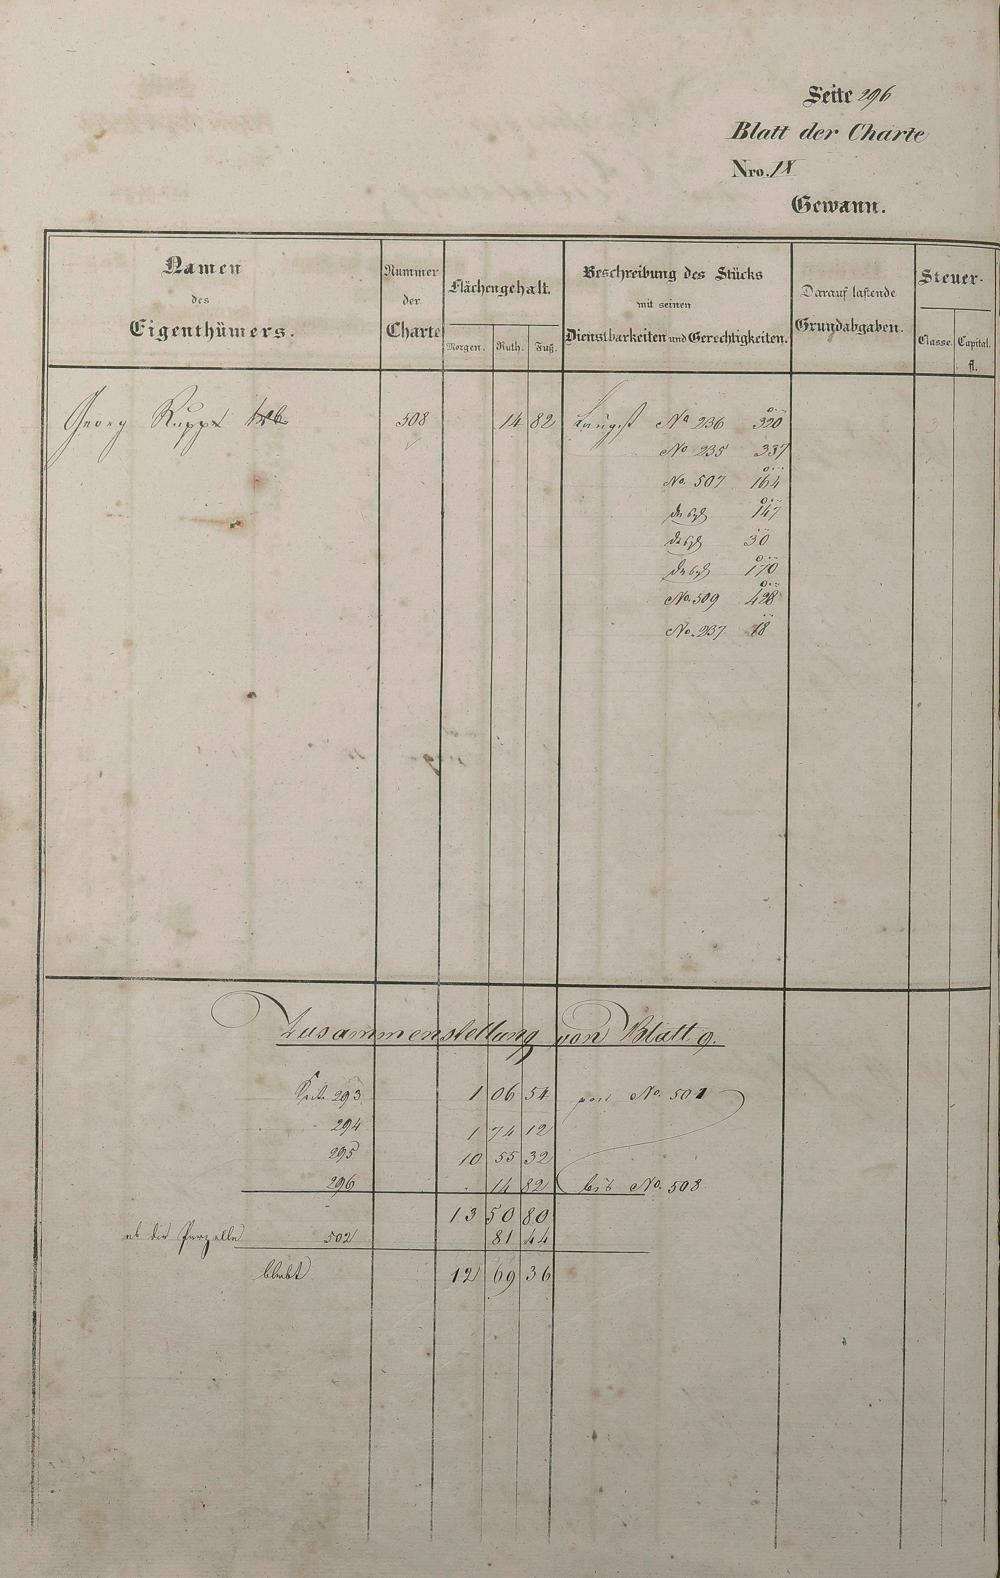 Seite 296
Blatt der Charte
Nro. IX
Gewann.
Namen des Eigenthümers.
Nummer der Charte
Flächengehalt.
Morgen. Ruth. Fuß.
Beschreibung des Stücks mit seinen Dienstbarkeiten und Gerechtigkeiten.
Darauf lastende Grundabgaben.
Steuer-
Classe. Capital. fl.
Georg Rupp 508 14 82 Längst No 236 320
No 235 337
No. 507 164
desgl 147
desgl 30
desgl 170
No. 509 428
No. 237 18
Zusammenstellung von Blatt 9.
Seite 293 1 06 54 von No. 501
294 1 74 12
295 10 55 32
296 14 82 bis No. 508
13 50 80
ab die Parzelle 502 81 44
bleibt 12 69 36